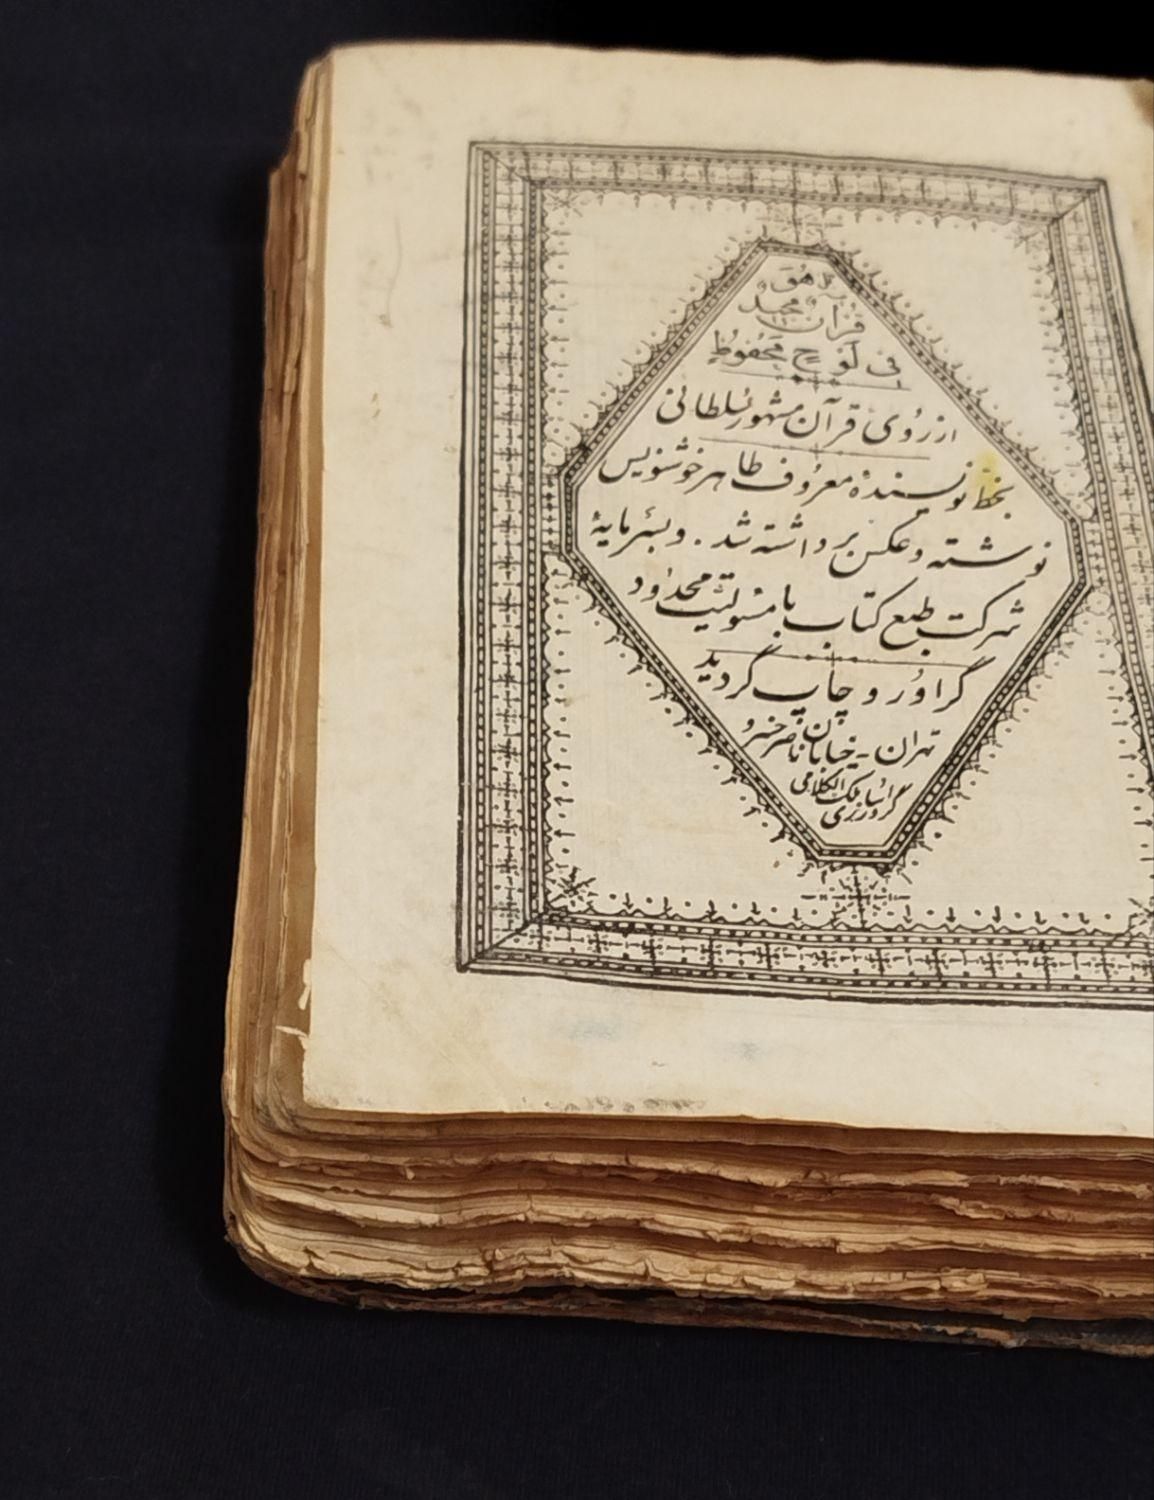 بل هُوَ
قُرآنٌ مَجیدٌ
فی لَوْحٍ مَحْفُوظٍ
از رُوی قرآن مشهور سُلطانی
بخطّ نویسنده معروف طاهر خوشنویس
نوشته و عکس برداشته شد . و بسرمایهٔ
شرکت طبع کتاب با مسئولیّت محدود
گراوُر و چاپ گردید
تهران - خیابان ناصر خسرو
گراورسازی